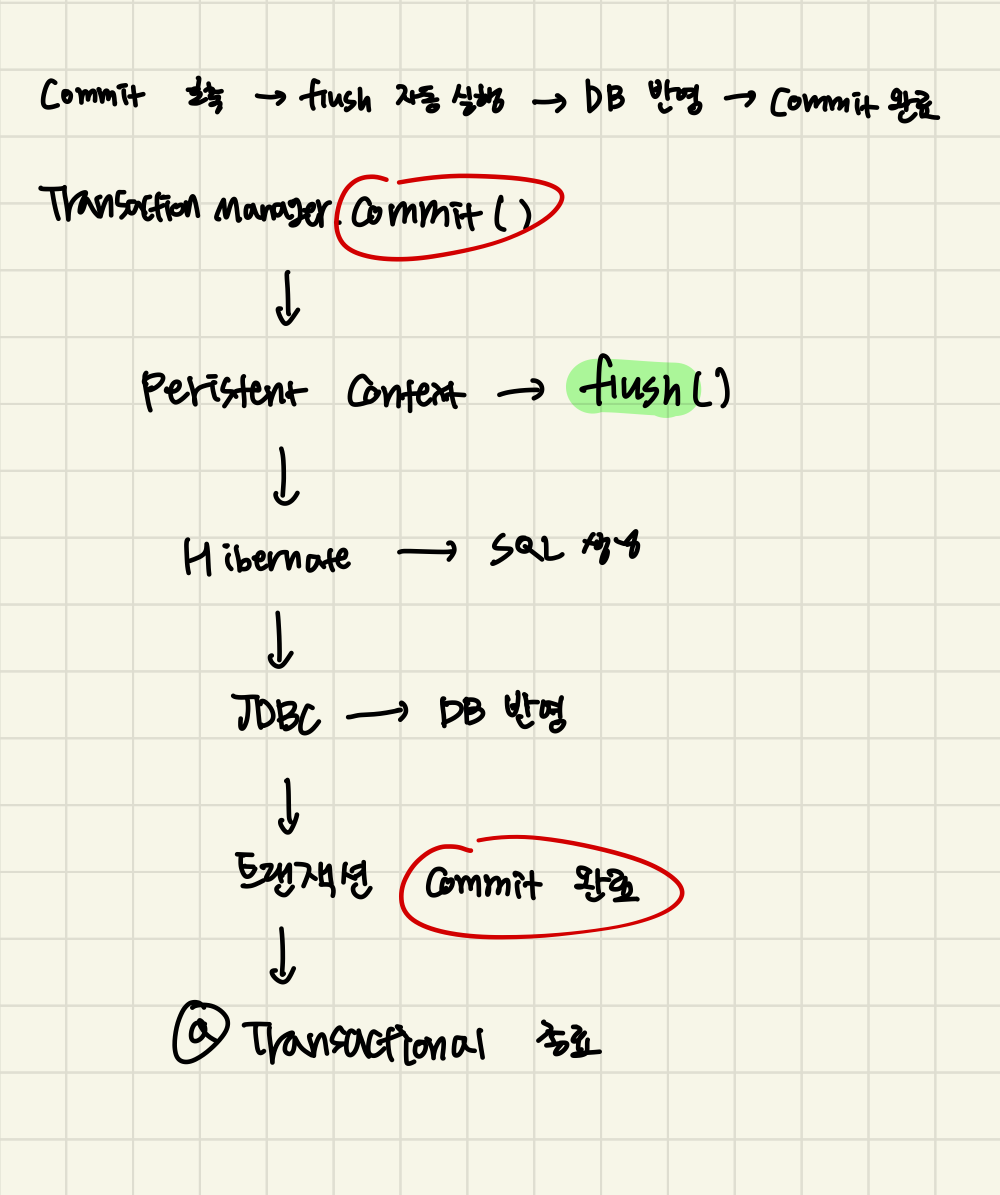 Commit 호출 → flush 자동 실행 → DB 반영 → Commit 완료
Transaction Manager.Commit()
↓
Peristent Context → flush()
↓
Hibernate → SQL 생성
↓
JDBC → DB 반영
↓
트랜잭션 Commit 완료
↓
@ Transactional 종료